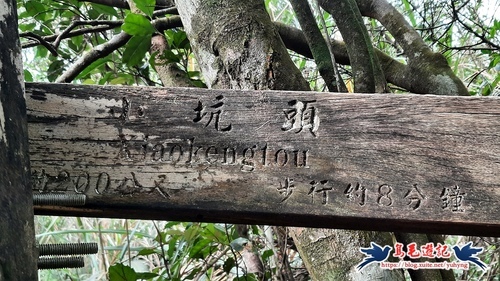 坑頭
Xiaokengtou
約200公尺 步行約8分鐘
鳥毛遊記
https://blog.xuite.net/yuhyng